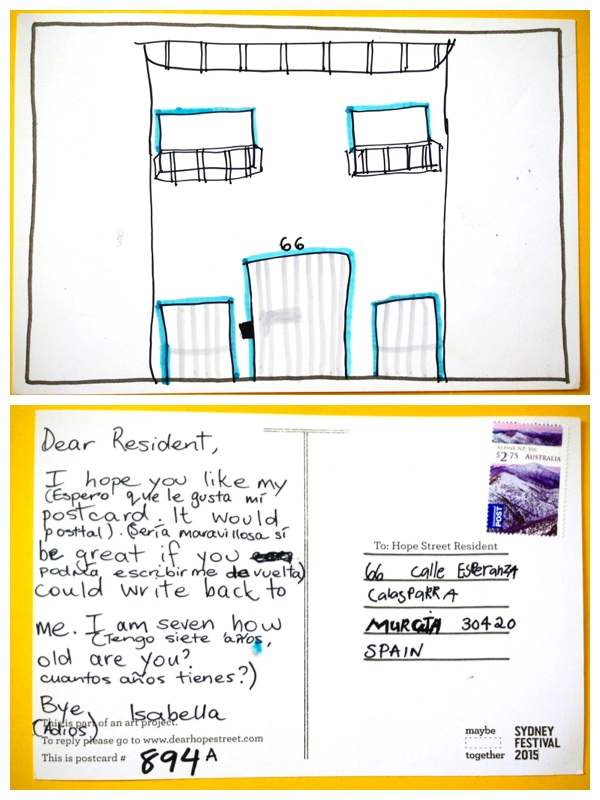 66
Dear Resident,
I hope you like my
(Espero que le gusta mi
postcard. It would
posttal). (Sería maravillosa sí
be great if you
podría escribirme de vuelta)
could write back to
me. I am seven how
(Tengo siete años,
old are you?
cuantos años tienes?)
Bye
(Adios)
Isabella
This is part of an art project.
To reply please go to www.dearhopestreet.com
This is postcard # 894A
ALPINE NP, VIC
$2.75 AUSTRALIA
POST
To: Hope Street Resident
66 calle EspEranzA
CalasparrA
MURCiA 30420
SPAIN
maybe
together
SYDNEY
FESTIVAL
2015